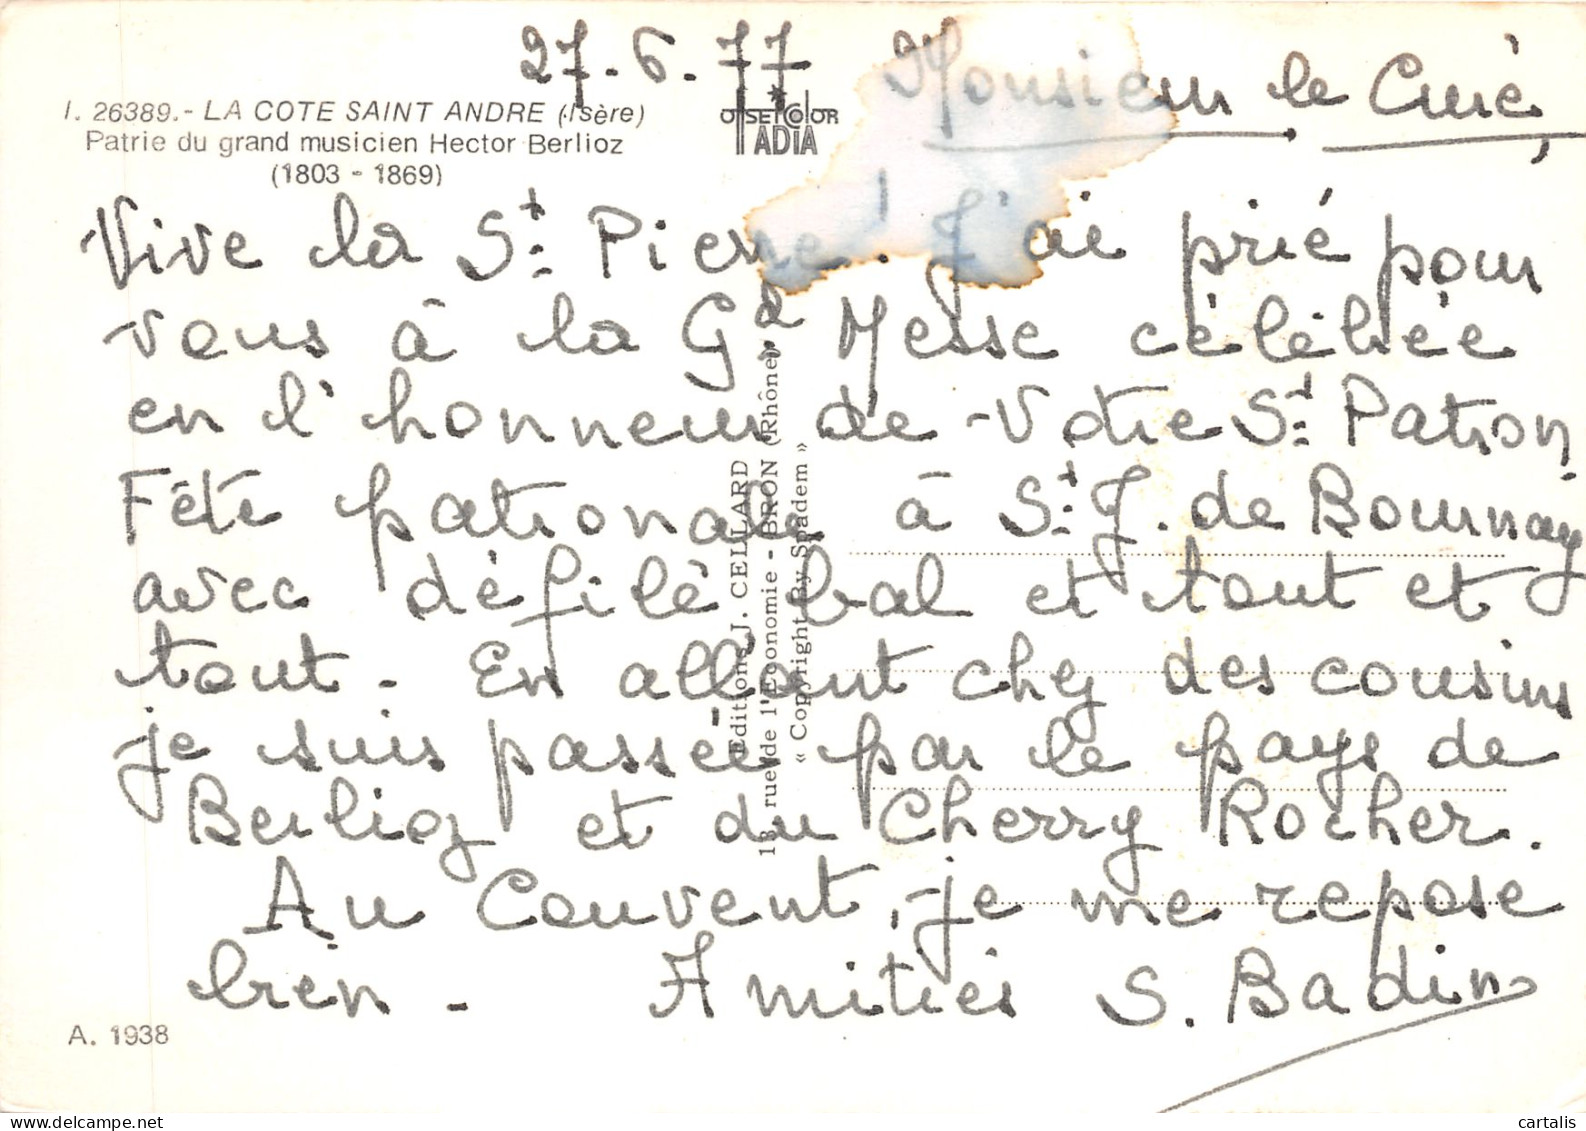 27-6-77 Monsieur le Curé,
I. 26389.- LA COTE SAINT ANDRE (Isère)
Patrie du grand musicien Hector Berlioz
(1803 - 1869)
OFFSET COLOR
ADIA
Vive la St. Pierre! J'ai prié pour
vous à la Gd Messe célébrée
en l'honneur de votre St. Patron
Fête patronale à St. J. de Bournay
avec défilé bal et tout et
tout - En allant chez des cousins
je suis passée par le pays de
Berlioz et du Cherry Rocher.
Au Couvent, je me repose
bien - Amitiés S. Badin
Editions J. CELLARD
13, rue de l'Economie - BRON (Rhône)
« Copyright By Spadem »
A. 1938
cartalis
www.delcampe.net